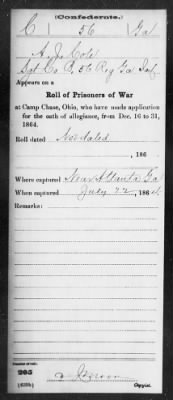 (Confederate.)
C 56 Ga
A. J. Cole
Sgt Co. 56 Reg Ga Inf.
Appears on a
Roll of Prisoners of War
at Camp Chase, Ohio, who have made application
for the oath of allegiance, from Dec. 16 to 31,
1864.
Roll dated Not dated
, 186
Where captured Near Atlanta Ga
When captured July 22, 1864.
Remarks:
Number of roll:
205
Copyist.